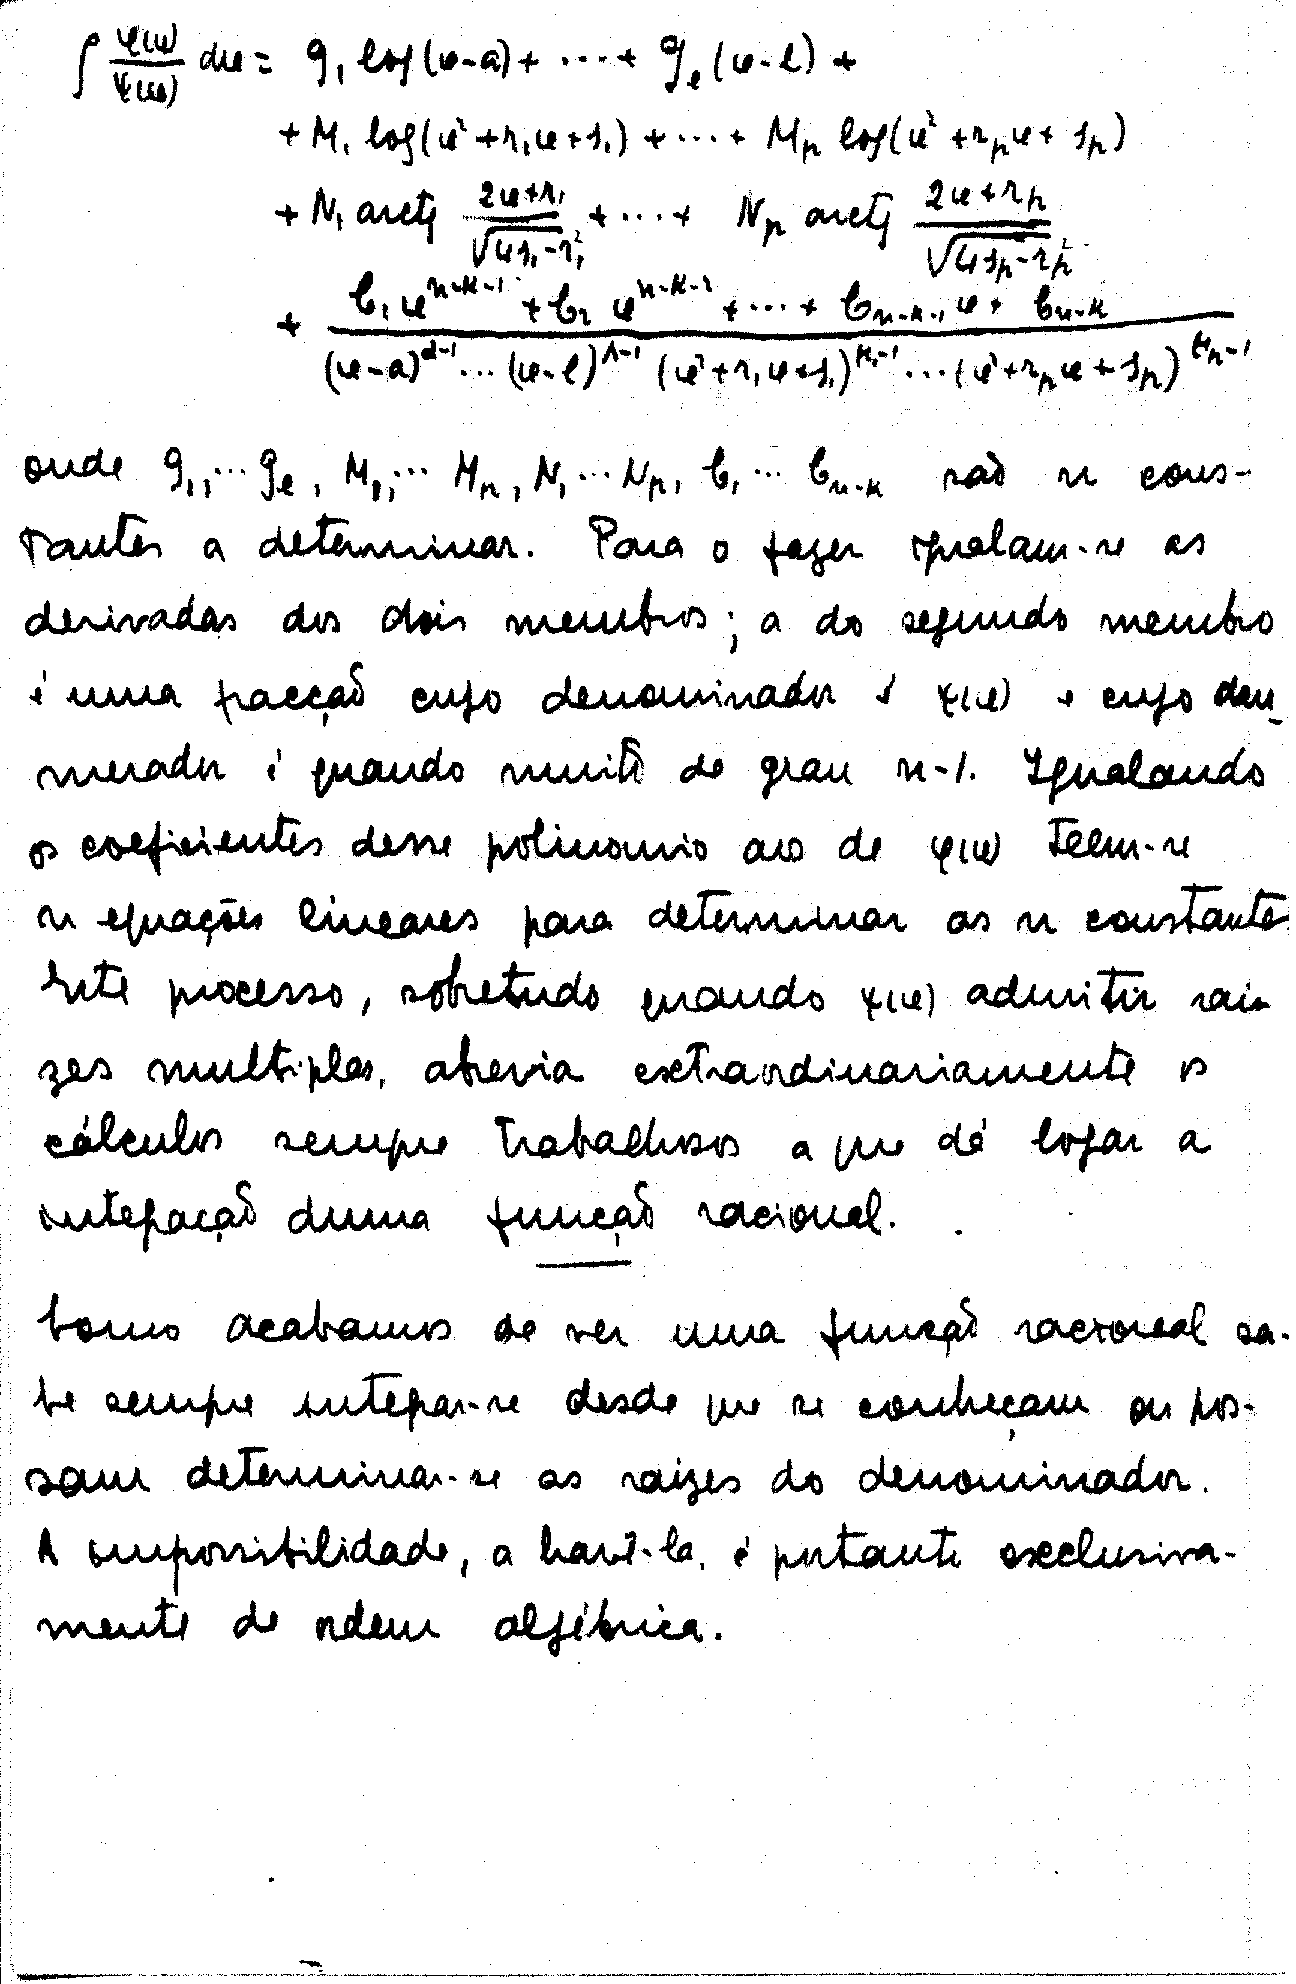 ∫ φ(x)/ψ(x) dx = g₁ log(x-a) + ... + gₑ (x-l) +
+ M₁ log(x² + r₁x + s₁) + ... + Mₚ log(x² + rₚx + sₚ)
+ N₁ arctg (2x+r₁)/√(4s₁-r₁²) + ... + Nₚ arctg (2x+rₚ)/√(4sₚ-rₚ²)
+ (C₁ x^(n-k-1) + C₂ x^(n-k-2) + ... + Cₙ₋ₖ₋₁ x + Cₙ₋ₖ) / ((x-a)^(α-1) ... (x-l)^(λ-1) (x²+r₁x+s₁)^(μ₁-1) ... (x²+rₚx+sₚ)^(μₚ-1))
onde g₁, ... gₑ, M₁, ... Mₚ, N₁ ... Nₚ, C₁ ... Cₙ₋ₖ são n cons-
tantes a determinar. Para o fazer igualam-se as
derivadas dos dois membros; a do segundo membro
é uma fracção cujo denominador é ψ(x) e cujo den_
merador é quando muito de grau n-1. Igualando
os coeficientes desse polinomio aos de φ(x) teem-se
n equações lineares para determinar as n constantes
Este processo, sobretudo quando ψ(x) admitir rai-
zes multiplas, abrevia extraordinariamente os
cálculos sempre trabalhosos a que dá logar a
integração duma função racional.
Como acabamos de ver uma função racional sa-
be sempre integrar-se desde que se conheçam ou pos-
sam determinar-se as raizes do denominador.
A impossibilidade, a havê-la, é portanto exclusiva-
mente de ordem algébrica.